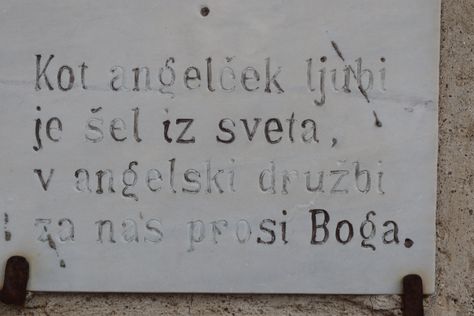 Kot angelček ljubi
je šel iz sveta,
v angelski družbi
za nas prosi Boga.